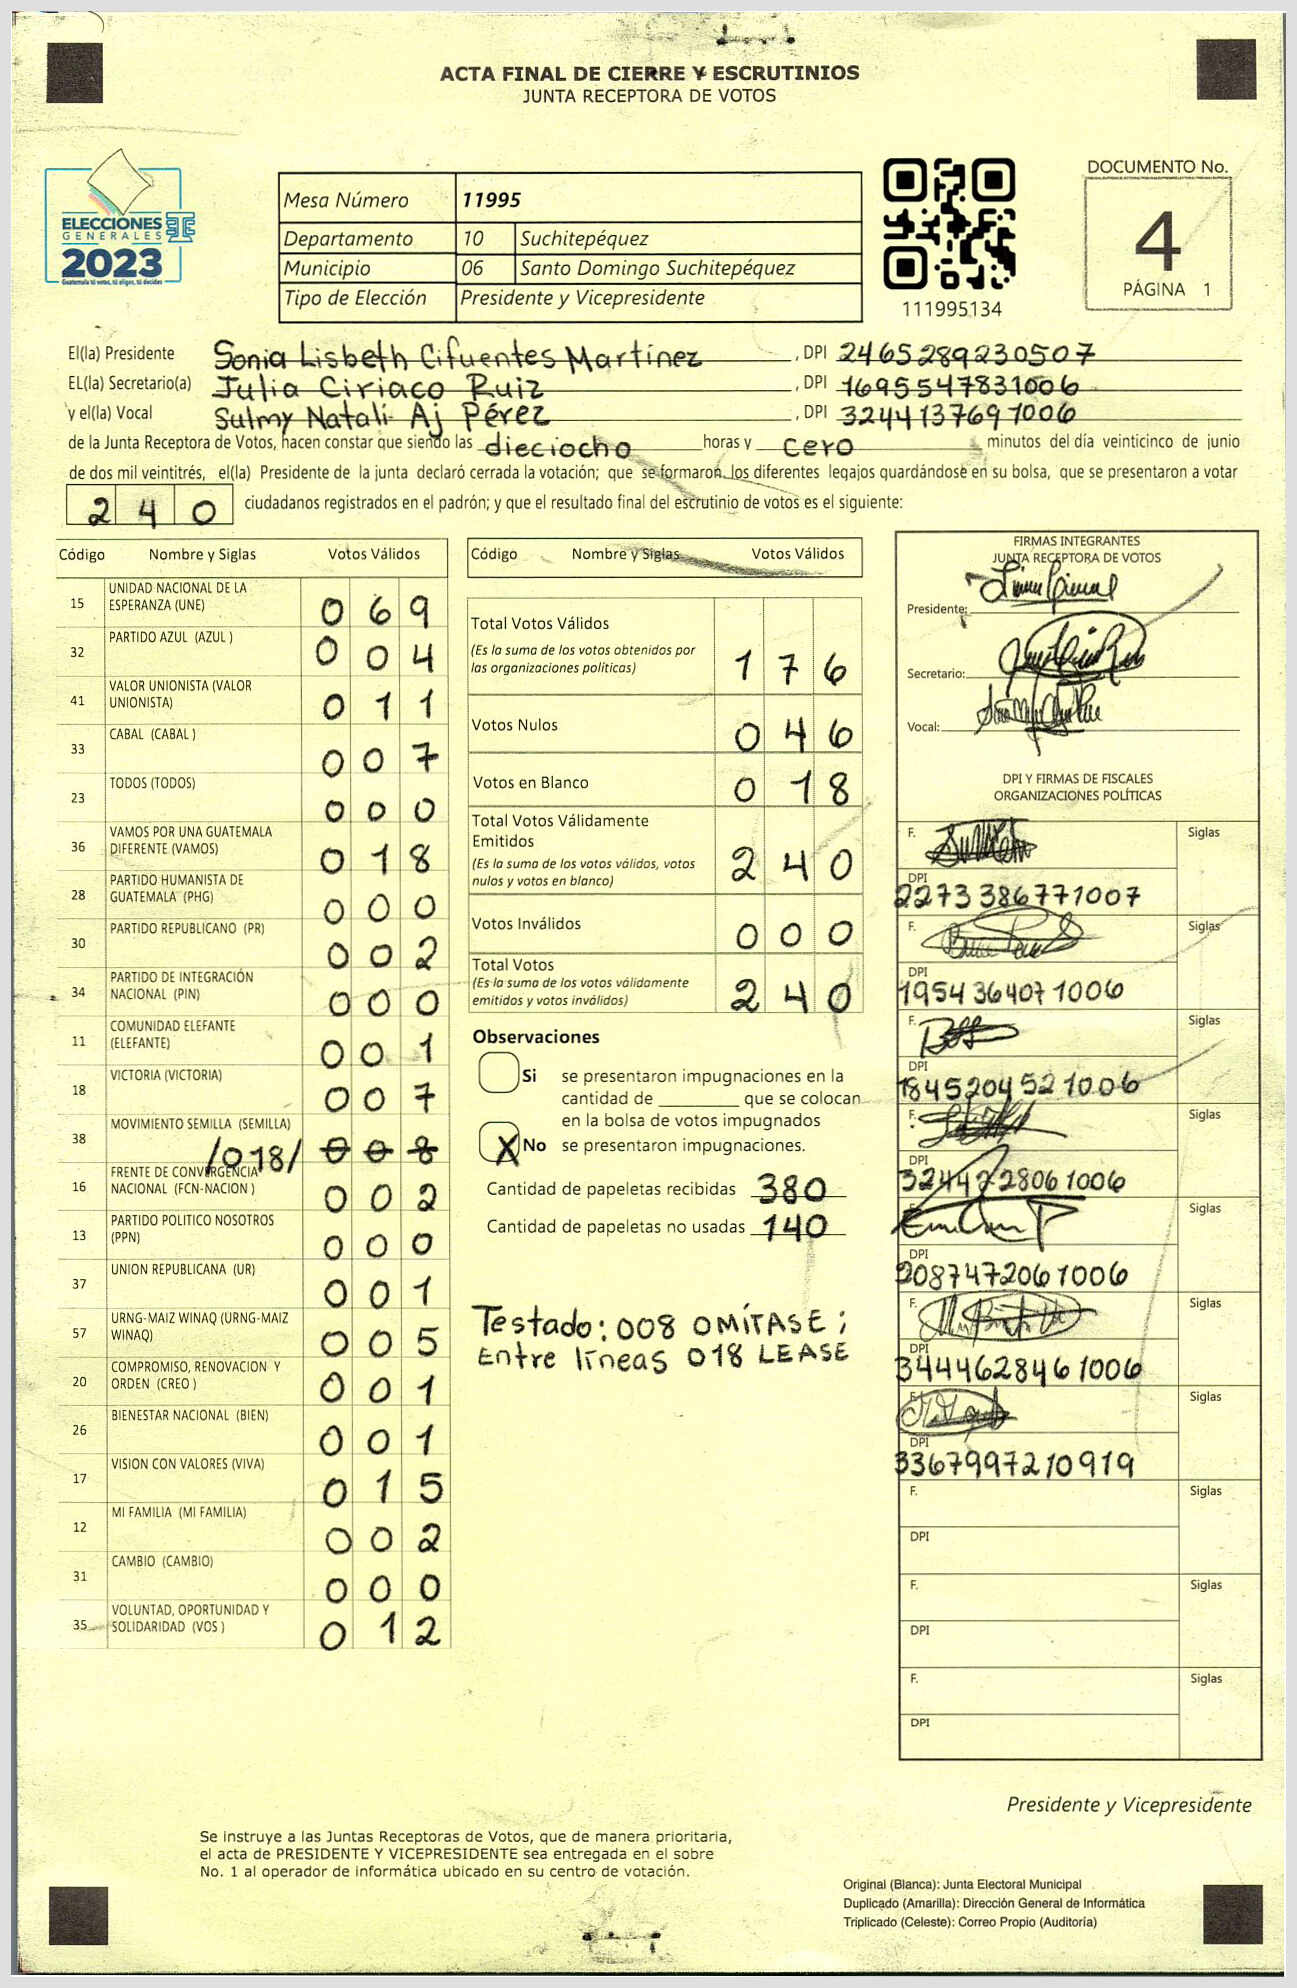 ACTA FINAL DE CIERRE Y ESCRUTINIOS
JUNTA RECEPTORA DE VOTOS
ELECCIONES
GENERALES
2023
Guatemala tú votas, tú eliges, tú decides
Mesa Número 11995
Departamento 10 Suchitepéquez
Municipio 06 Santo Domingo Suchitepéquez
Tipo de Elección Presidente y Vicepresidente
111995134
DOCUMENTO No.
4
PÁGINA 1
El(la) Presidente Sonia Lisbeth Cifuentes Martínez, DPI 2465289230507
EL(la) Secretario(a) Julia Ciriaco Ruiz, DPI 1695547831006
y el(la) Vocal Sulmy Natali Aj Pérez, DPI 3244137691006
de la Junta Receptora de Votos, hacen constar que siendo las dieciocho horas y cero minutos del día veinticinco de junio
de dos mil veintitrés, el(la) Presidente de la junta declaró cerrada la votación; que se formaron los diferentes legajos guardándose en su bolsa, que se presentaron a votar
240 ciudadanos registrados en el padrón; y que el resultado final del escrutinio de votos es el siguiente:
Código Nombre y Siglas Votos Válidos
15 UNIDAD NACIONAL DE LA ESPERANZA (UNE) 069
32 PARTIDO AZUL (AZUL ) 004
41 VALOR UNIONISTA (VALOR UNIONISTA) 011
33 CABAL (CABAL ) 007
23 TODOS (TODOS) 000
36 VAMOS POR UNA GUATEMALA DIFERENTE (VAMOS) 018
28 PARTIDO HUMANISTA DE GUATEMALA (PHG) 000
30 PARTIDO REPUBLICANO (PR) 002
34 PARTIDO DE INTEGRACIÓN NACIONAL (PIN) 000
11 COMUNIDAD ELEFANTE (ELEFANTE) 001
18 VICTORIA (VICTORIA) 007
38 MOVIMIENTO SEMILLA (SEMILLA) /018/ 008
16 FRENTE DE CONVERGENCIA NACIONAL (FCN-NACION ) 002
13 PARTIDO POLITICO NOSOTROS (PPN) 000
37 UNION REPUBLICANA (UR) 001
57 URNG-MAIZ WINAQ (URNG-MAIZ WINAQ) 005
20 COMPROMISO, RENOVACION Y ORDEN (CREO ) 001
26 BIENESTAR NACIONAL (BIEN) 001
17 VISION CON VALORES (VIVA) 015
12 MI FAMILIA (MI FAMILIA) 002
31 CAMBIO (CAMBIO) 000
35 VOLUNTAD, OPORTUNIDAD Y SOLIDARIDAD (VOS ) 012
Código Nombre y Siglas Votos Válidos
Total Votos Válidos
(Es la suma de los votos obtenidos por
las organizaciones políticas) 176
Votos Nulos 046
Votos en Blanco 018
Total Votos Válidamente
Emitidos
(Es la suma de los votos válidos, votos
nulos y votos en blanco) 240
Votos Inválidos 000
Total Votos
(Es la suma de los votos válidamente
emitidos y votos inválidos) 240
Observaciones
Si se presentaron impugnaciones en la
cantidad de ________ que se colocan
en la bolsa de votos impugnados
X No se presentaron impugnaciones.
Cantidad de papeletas recibidas 380
Cantidad de papeletas no usadas 140
Testado: 008 OMÍTASE;
Entre líneas 018 LEASE
FIRMAS INTEGRANTES
JUNTA RECEPTORA DE VOTOS
Presidente:
Secretario:
Vocal:
DPI Y FIRMAS DE FISCALES
ORGANIZACIONES POLÍTICAS
F. Siglas
DPI
2273386771007
F. Siglas
DPI
1954364071006
F. Siglas
DPI
1845204521006
F. Siglas
DPI
3244228061006
Siglas
DPI
2087472061006
F. Siglas
DPI
3444628461006
F. Siglas
DPI
3367997210919
F. Siglas
DPI
F. Siglas
DPI
F. Siglas
DPI
Presidente y Vicepresidente
Se instruye a las Juntas Receptoras de Votos, que de manera prioritaria,
el acta de PRESIDENTE Y VICEPRESIDENTE sea entregada en el sobre
No. 1 al operador de informática ubicado en su centro de votación.
Original (Blanca): Junta Electoral Municipal
Duplicado (Amarilla): Dirección General de Informática
Triplicado (Celeste): Correo Propio (Auditoría)